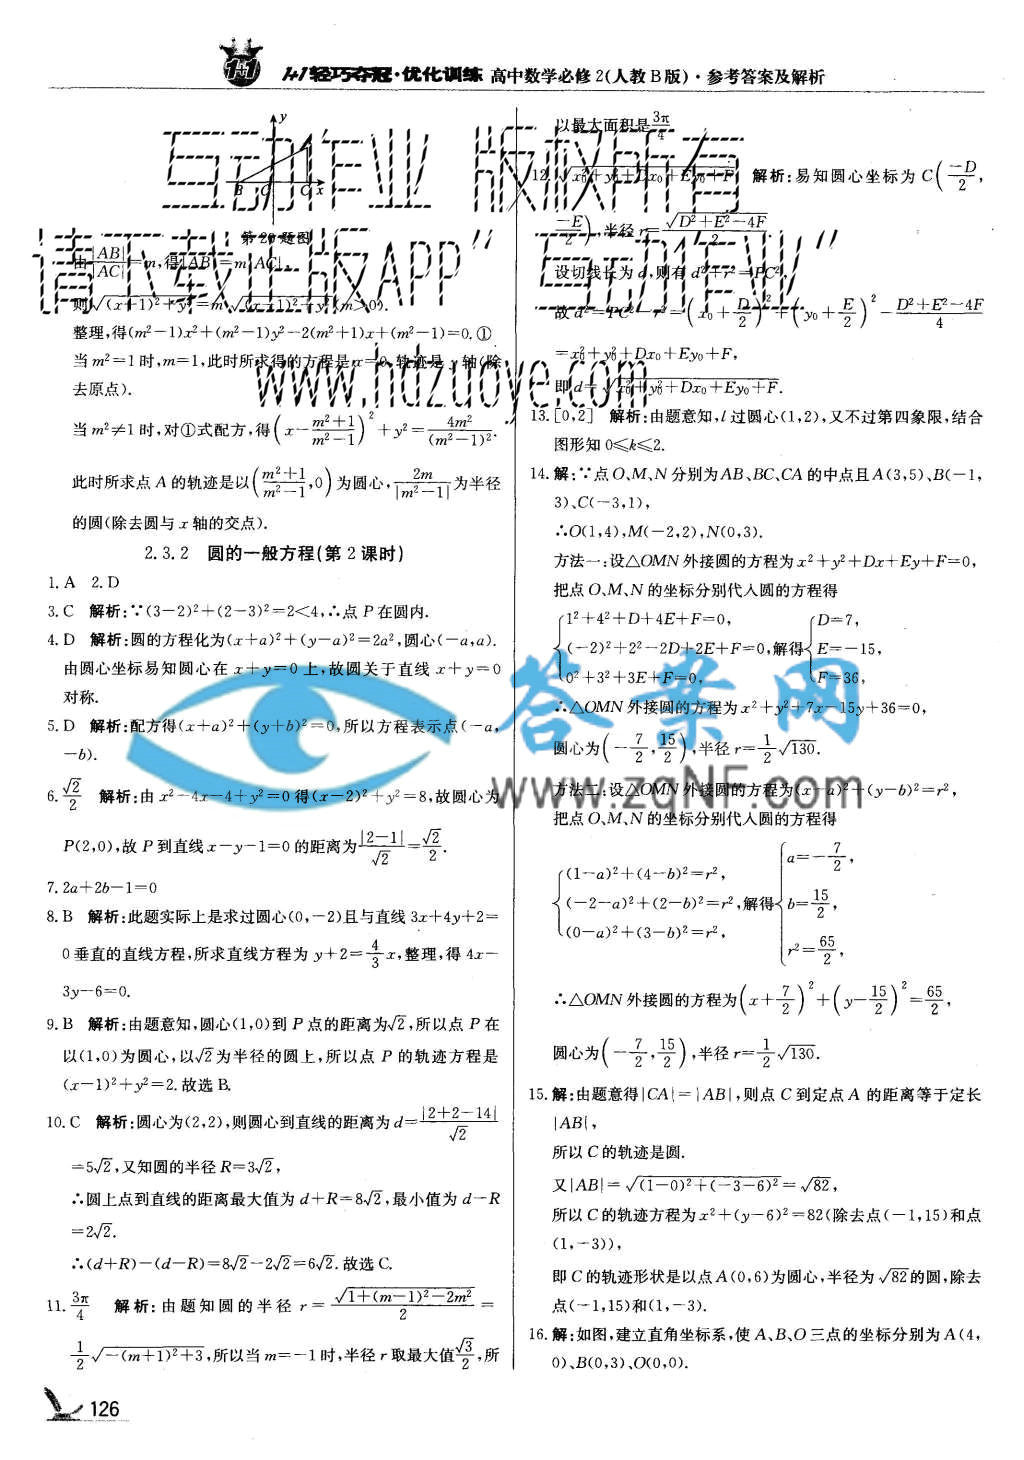 1+1轻巧夺冠·优化训练 高中数学必修2(人教B版)·参考答案及解析
y
B C O x
第20题图
由|AB|/|AC|=m,得|AB|=m|AC|,
则√((x+1)²+y²)=m√((x-1)²+y²)(m>0).
整理,得(m²-1)x²+(m²-1)y²-2(m²+1)x+(m²-1)=0.①
当m²=1时,m=1,此时所求得的方程是x=0,轨迹是y轴(除
去原点).
当m²≠1时,对①式配方,得(x-(m²+1)/(m²-1))²+y²=4m²/(m²-1)².
此时所求点A的轨迹是以((m²+1)/(m²-1),0)为圆心,2m/|m²-1|为半径
的圆(除去圆与x轴的交点).
2.3.2 圆的一般方程(第2课时)
1.A 2.D
3.C 解析:∵(3-2)²+(2-3)²=2<4,∴点P在圆内.
4.D 解析:圆的方程化为(x+a)²+(y-a)²=2a²,圆心(-a,a).
由圆心坐标易知圆心在x+y=0上,故圆关于直线x+y=0
对称.
5.D 解析:配方得(x+a)²+(y+b)²=0,所以方程表示点(-a,
-b).
6.√2/2 解析:由x²-4x-4+y²=0得(x-2)²+y²=8,故圆心为
P(2,0),故P到直线x-y-1=0的距离为|2-1|/√2=√2/2.
7.2a+2b-1=0
8.B 解析:此题实际上是求过圆心(0,-2)且与直线3x+4y+2=
0垂直的直线方程,所求直线方程为y+2=4/3x,整理,得4x-
3y-6=0.
9.B 解析:由题意知,圆心(1,0)到P点的距离为√2,所以点P在
以(1,0)为圆心,以√2为半径的圆上,所以点P的轨迹方程是
(x-1)²+y²=2.故选B.
10.C 解析:圆心为(2,2),则圆心到直线的距离为d=|2+2-14|/√2
=5√2,又知圆的半径R=3√2,
∴圆上点到直线的距离最大值为d+R=8√2,最小值为d-R
=2√2.
∴(d+R)-(d-R)=8√2-2√2=6√2.故选C.
11.3π/4 解析:由题知圆的半径r=√(1+(m-1)²-2m²)/2=
1/2√(-(m+1)²+3),所以当m=-1时,半径r取最大值√3/2,所
126
以最大面积是3π/4.
12.√(x₀²+y₀²+Dx₀+Ey₀+F) 解析:易知圆心坐标为C(-D/2,
-E/2),半径r=√(D²+E²-4F)/2.
设切线长为d,则有d²+r²=PC²,
故d²=PC²-r²=(x₀+D/2)²+(y₀+E/2)²-(D²+E²-4F)/4
=x₀²+y₀²+Dx₀+Ey₀+F,
即d=√(x₀²+y₀²+Dx₀+Ey₀+F).
13.[0,2] 解析:由题意知,l过圆心(1,2),又不过第四象限,结合
图形知0≤k≤2.
14.解:∵点O、M、N分别为AB、BC、CA的中点且A(3,5)、B(-1,
3)、C(-3,1),
∴O(1,4),M(-2,2),N(0,3).
方法一:设△OMN外接圆的方程为x²+y²+Dx+Ey+F=0,
把点O、M、N的坐标分别代入圆的方程得
1²+4²+D+4E+F=0, D=7,
(-2)²+2²-2D+2E+F=0,解得 E=-15,
0²+3²+3E+F=0, F=36,
∴△OMN外接圆的方程为x²+y²+7x-15y+36=0,
圆心为(-7/2,15/2),半径r=1/2√130.
方法二:设△OMN外接圆的方程为(x-a)²+(y-b)²=r²,
把点O、M、N的坐标分别代入圆的方程得
(1-a)²+(4-b)²=r², a=-7/2,
(-2-a)²+(2-b)²=r²,解得 b=15/2,
(0-a)²+(3-b)²=r², r²=65/2,
∴△OMN外接圆的方程为(x+7/2)²+(y-15/2)²=65/2,
圆心为(-7/2,15/2),半径r=1/2√130.
15.解:由题意得|CA|=|AB|,则点C到定点A的距离等于定长
|AB|,
所以C的轨迹是圆.
又|AB|=√((1-0)²+(-3-6)²)=√82,
所以C的轨迹方程为x²+(y-6)²=82(除去点(-1,15)和点
(1,-3)),
即C的轨迹形状是以点A(0,6)为圆心,半径为√82的圆,除去
点(-1,15)和(1,-3).
16.解:如图,建立直角坐标系,使A、B、O三点的坐标分别为A(4,
0)、B(0,3)、O(0,0).
互动作业 版权所有
请下载正版APP"互动作业"
www.hdzuoye.com
答案网
www.zqNF.com